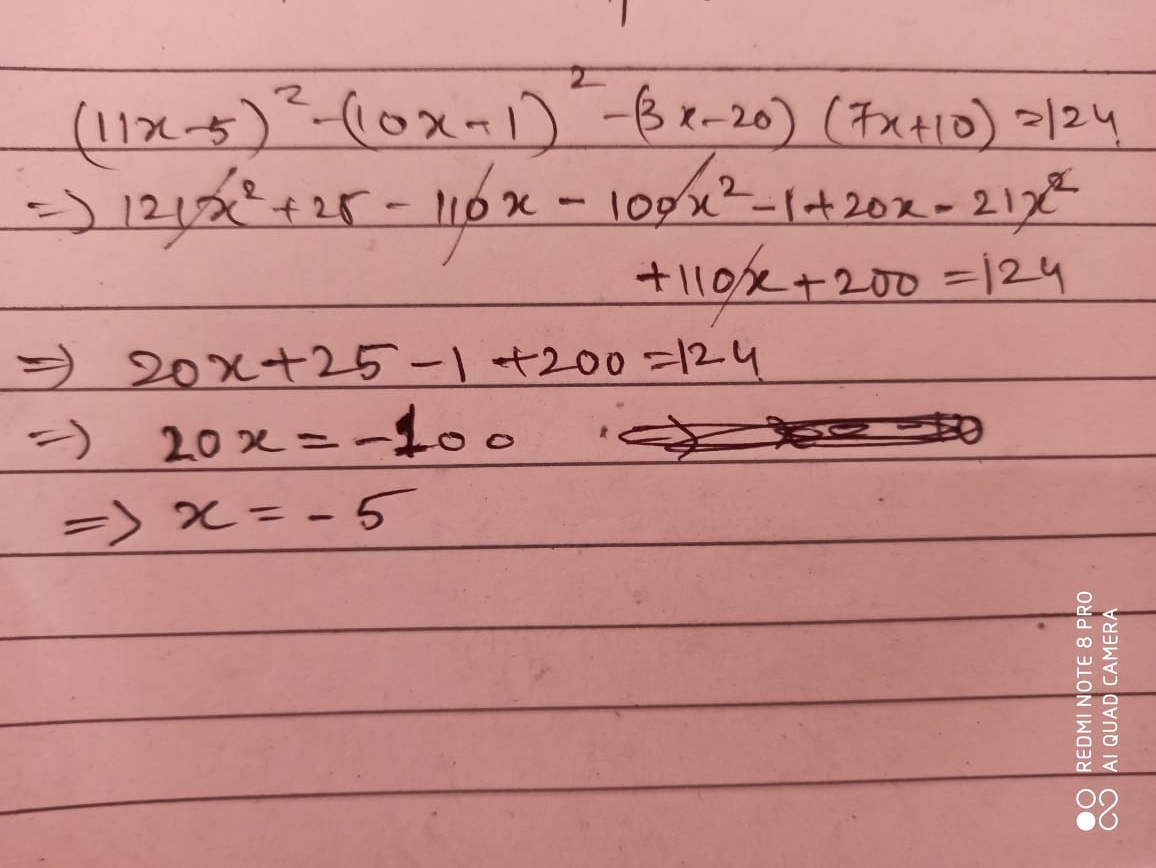 (11x-5)² -(10x-1)² -(3x-20) (7x+10) =124
=> 121x² +25 - 110x - 100x² -1+20x - 21x²
+110x+200 =124
=> 20x+25 -1 +200 =124
=> 20x = -100
=> x = -5
REDMI NOTE 8 PRO
AI QUAD CAMERA